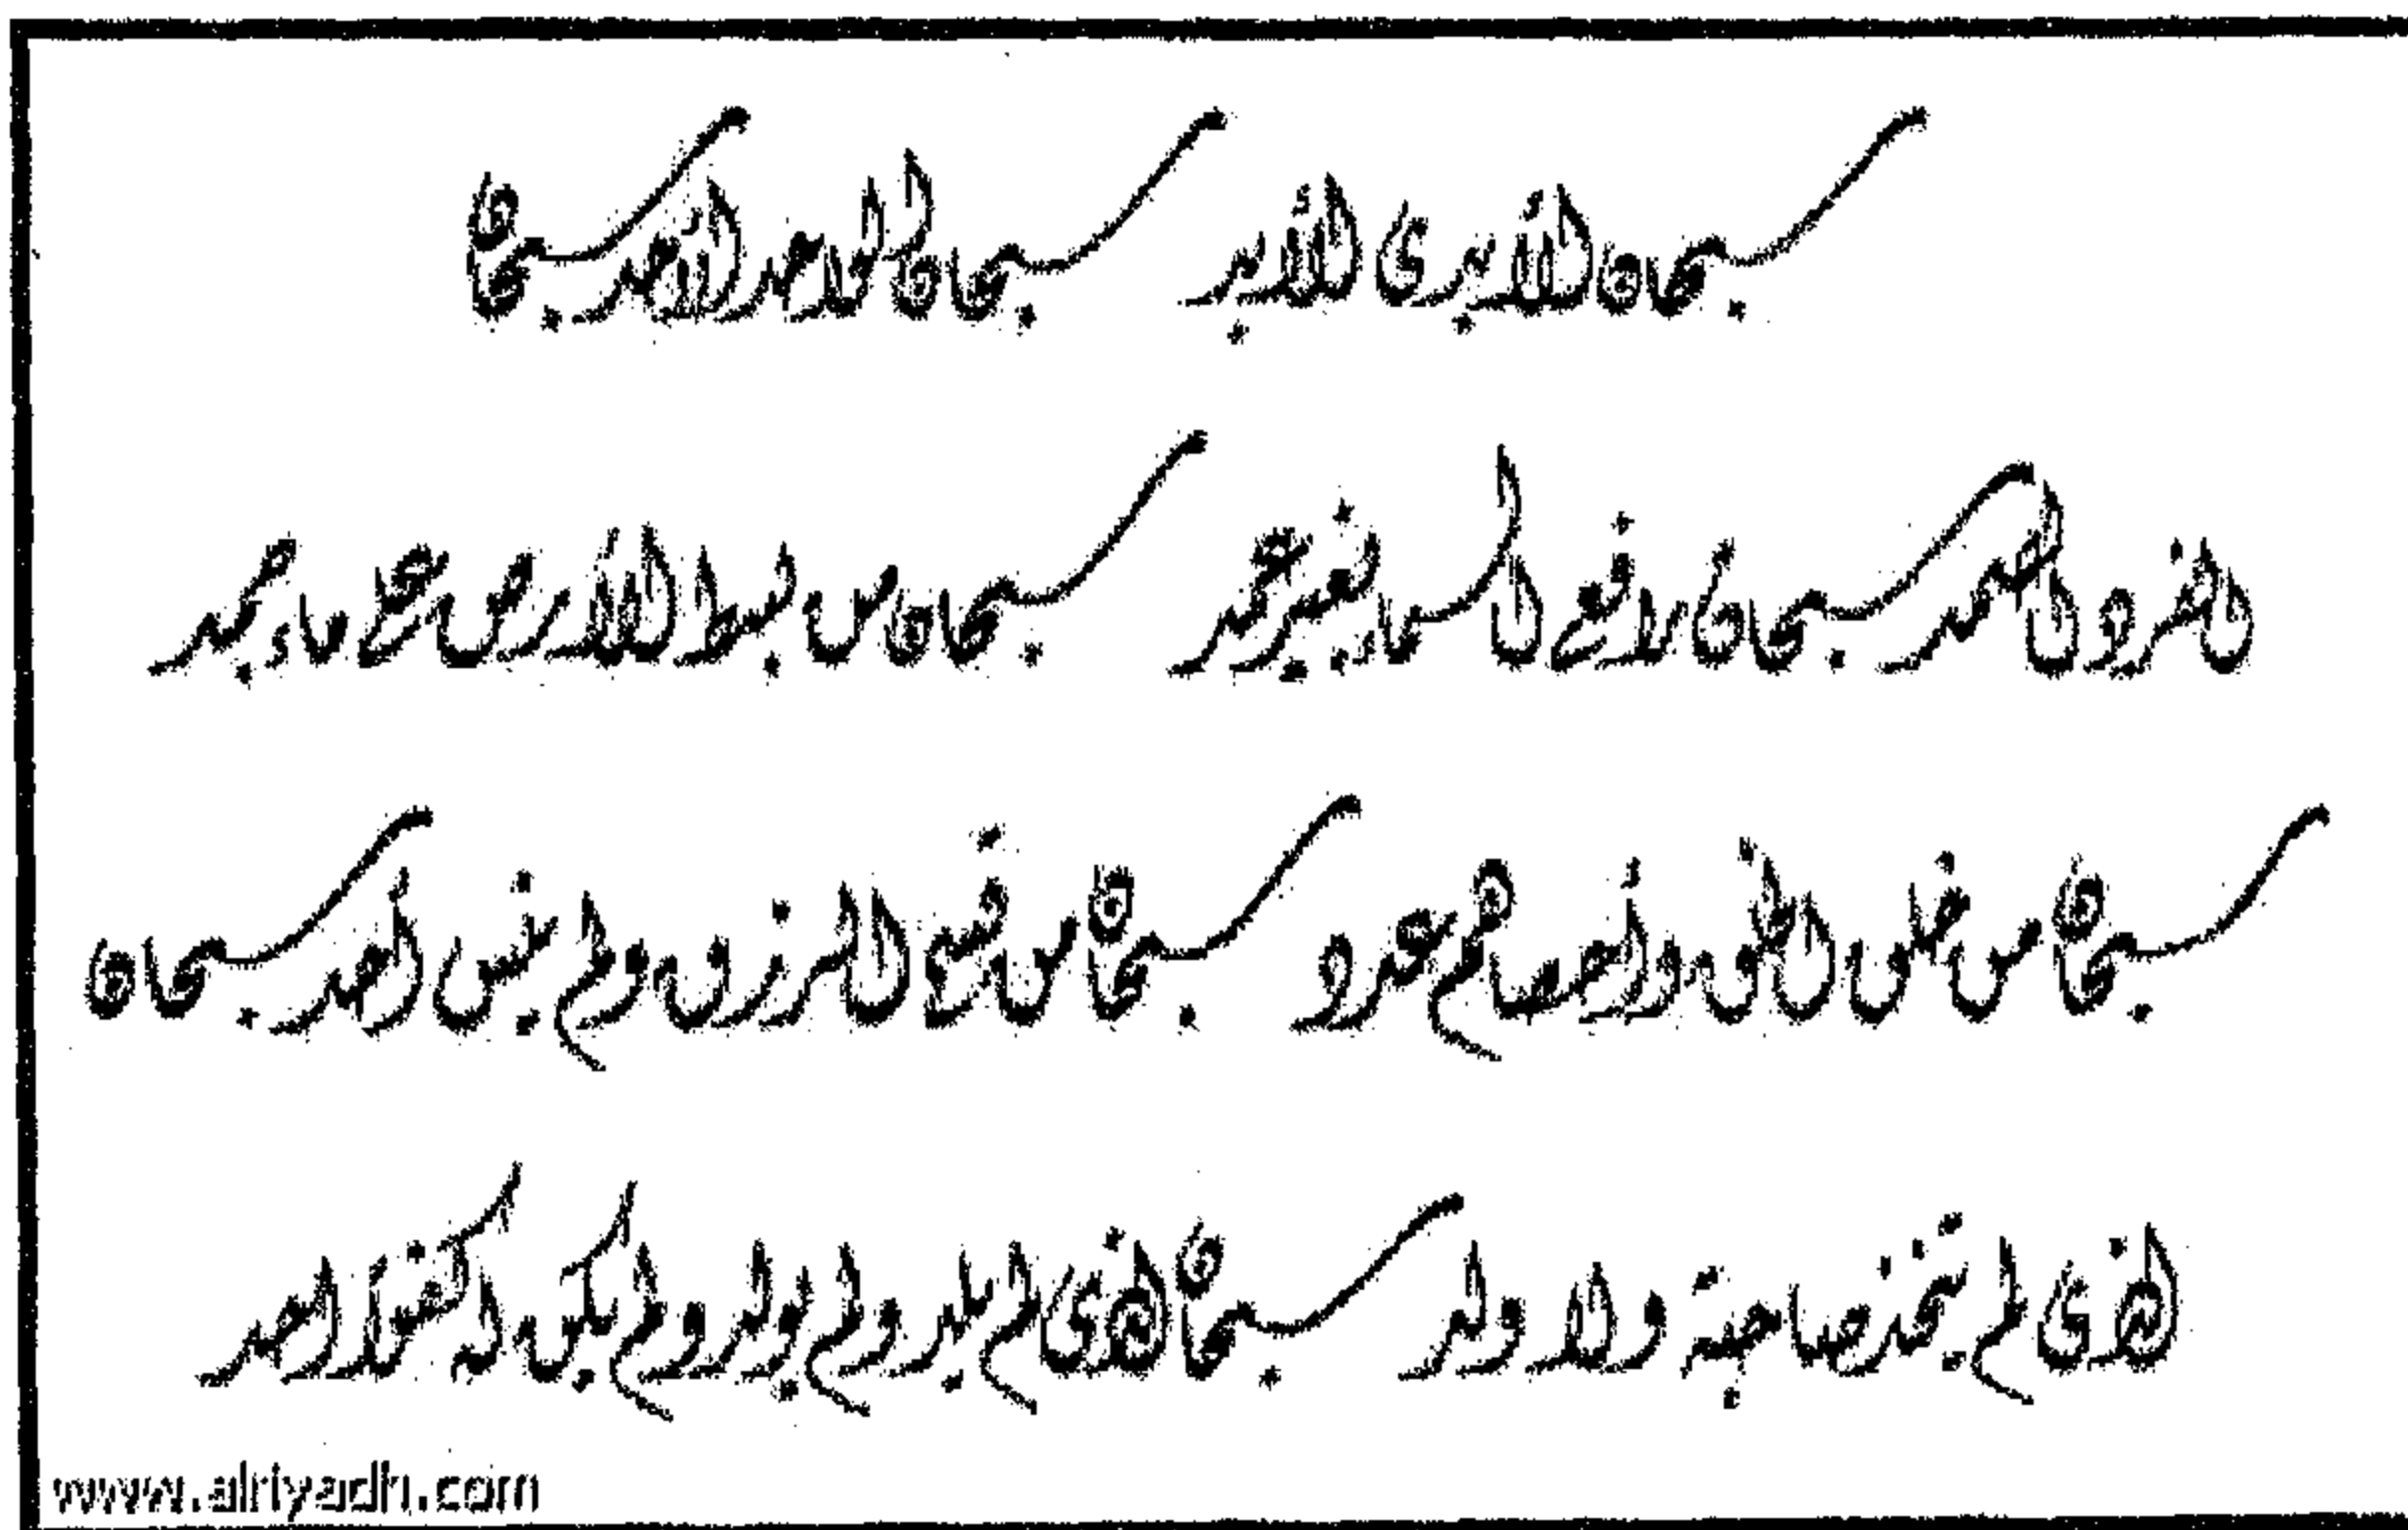 سبحان الأبدي الأبد سبحان الواحد الأحد سبحان
الفرد الصمد سبحان رافع السماء بغير عمد سبحان من بسط الأرض على ماء جمد
سبحان من خلق الخلق وأحصاهم عدد سبحان من قسم الرزق ولم ينس أحد سبحان
الذي لم يتخذ صاحبة ولا ولد سبحان الذي لم يلد ولم يولد ولم يكن له كفوا أحد
www.alriyadh.com